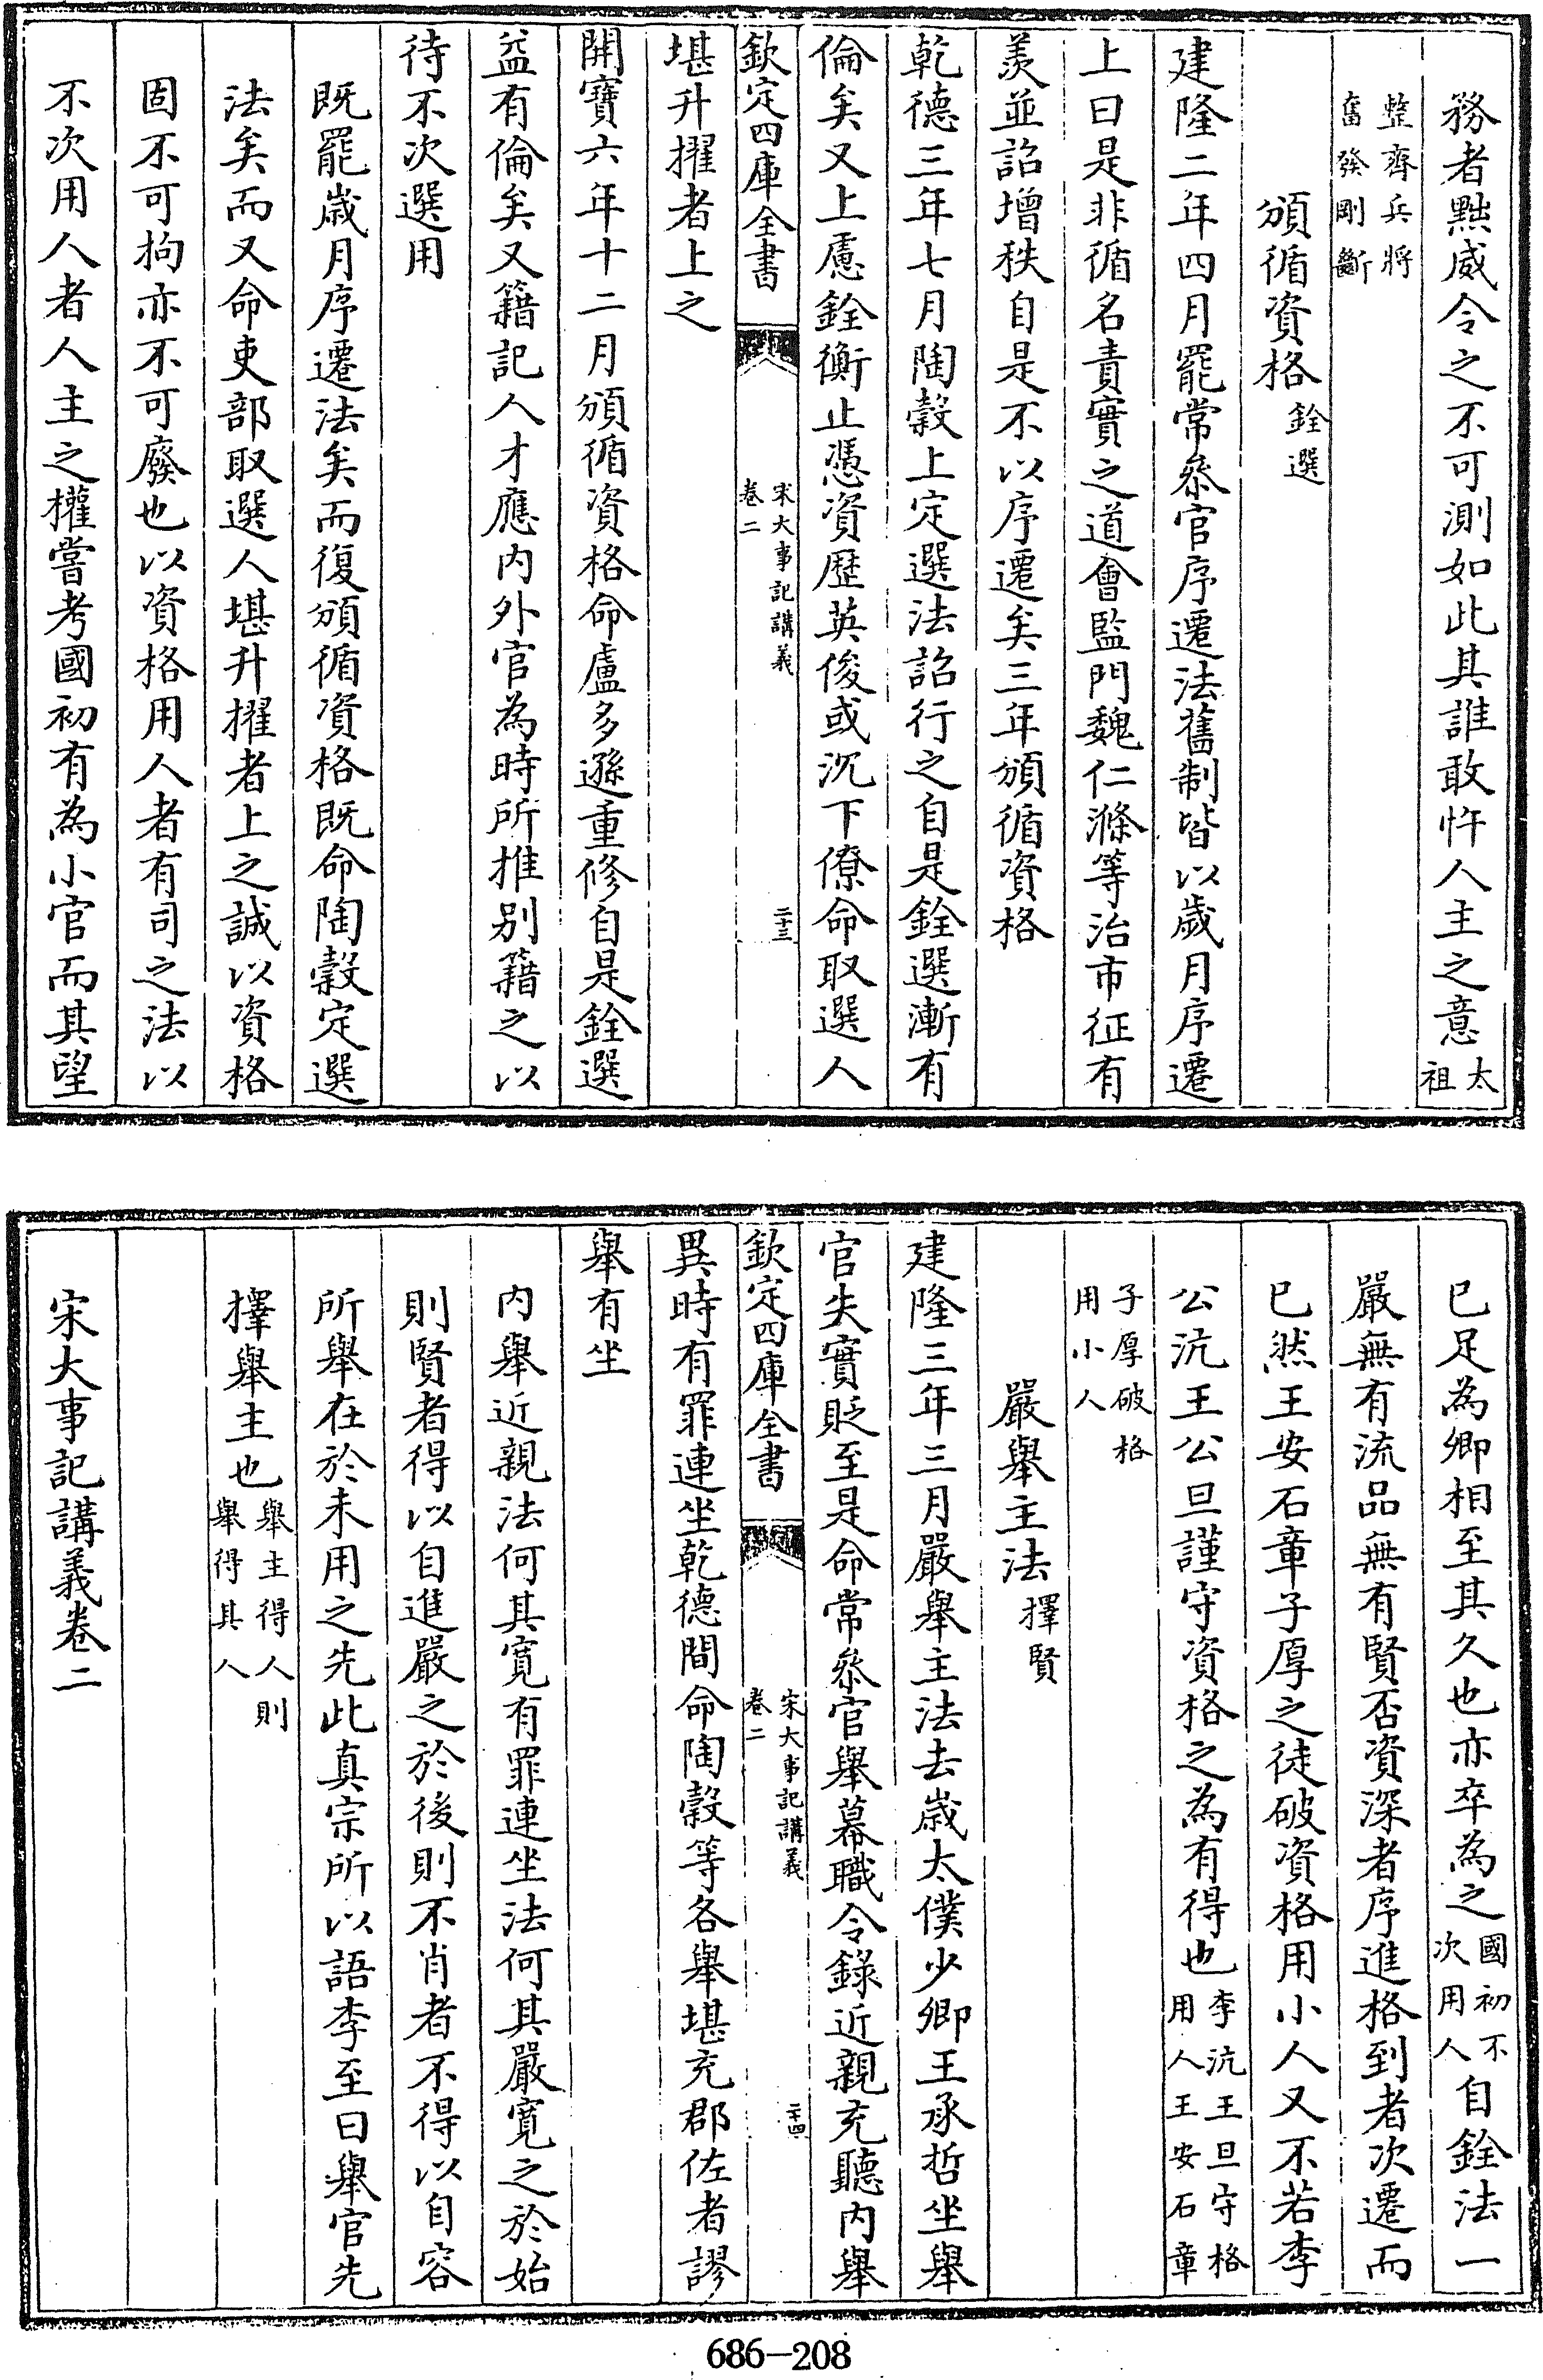 務者黜威令之不可測如此其誰敢忤人主之意太祖
整齊兵將奮發剛斷
頒循資格銓選
建隆二年四月罷常叅官序遷法舊制皆以歲月序遷
上曰是非循名責實之道會監門魏仁滌等治市征有
羨並詔增秩自是不以序遷矣三年頒循資格
乾德三年七月陶穀上定選法詔行之自是銓選漸有
倫矣又上慮銓衡止憑資歷英俊或沉下僚命取選人
欽定四庫全書
宋大事記講義
卷二
二十三
堪升擢者上之
開寶六年十二月頒循資格命盧多遜重修自是銓選
益有倫矣又籍記人才應内外官為時所推別籍之以
待不次選用
既罷歲月序遷法矣而復頒循資格既命陶穀定選
法矣而又命吏部取選人堪升擢者上之誠以資格
固不可拘亦不可廢也以資格用人者有司之法以
不次用人者人主之權嘗考國初有為小官而其望
已足為卿相至其久也亦卒為之國初不次用人自銓法一
嚴無有流品無有賢否資深者序進格到者次遷而
已然王安石章子厚之徒破資格用小人又不若李
公沆王公旦謹守資格之為有得也李沆王旦守格用人王安石章
子厚破格用小人
嚴舉主法擇賢
建隆三年三月嚴舉主法去歲太僕少卿王承哲坐舉
官失實貶至是命常叅官舉幕職令錄近親充聽内舉
欽定四庫全書
宋大事記講義
卷二
二十四
異時有罪連坐乾德間命陶穀等各舉堪充郡佐者謬
舉有坐
内舉近親法何其寬有罪連坐法何其嚴寬之於始
則賢者得以自進嚴之於後則不肖者不得以自容
所舉在於未用之先此真宗所以語李至曰舉官先
擇舉主也舉主得人則舉得其人
宋大事記講義卷二
686-208